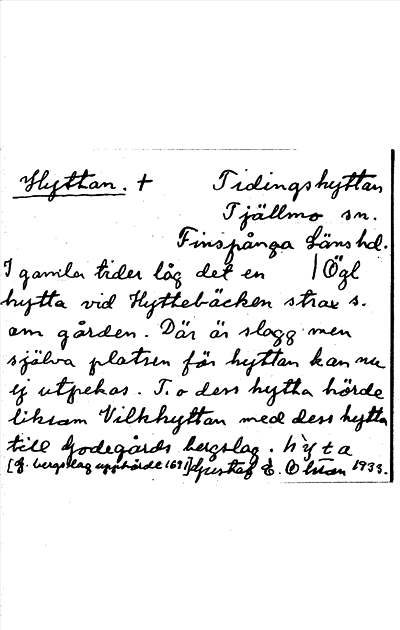 Hyttan. † Tidingshyttan
Tjällmo sn.
Finspånga Länshd.
I gamla tider låg det en / Ögl
hytta vid Hyttebäcken strax s.
om gården. Där är slagg men
själva platsen för hyttan kan nu
ej utpekas. T. o dess hytta hörde
liksom Vilkhyttan med dess hytta
till Godegårds bergslag. hỳta
[G. bergslag upphörde 169 ] Gustaf E. Ohman 1933.